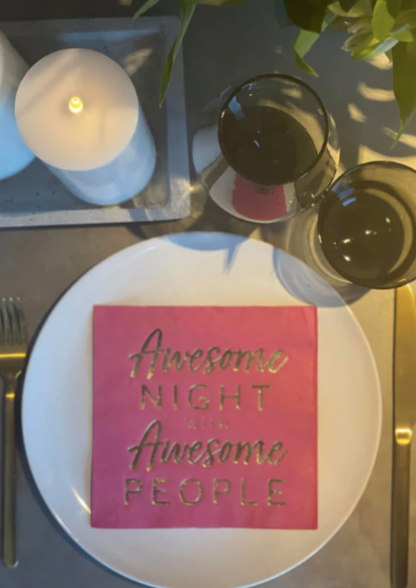 Awesome
NIGHT
with
Awesome
PEOPLE